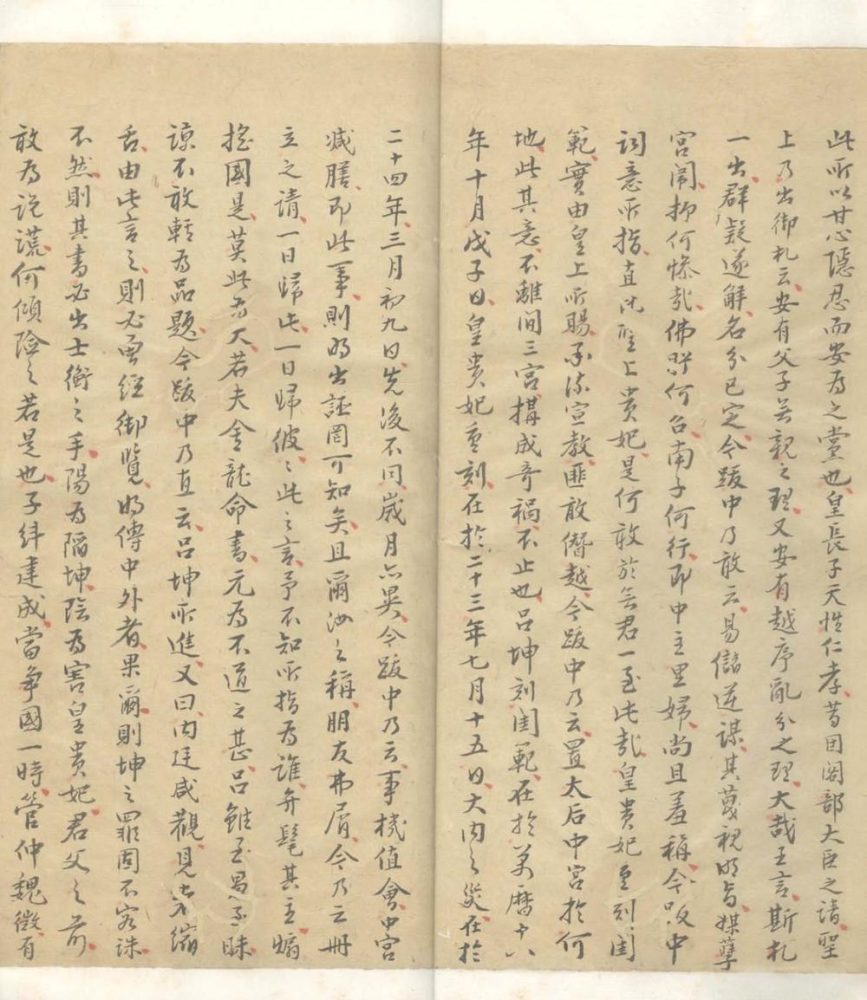 此所以甘心隱忍而安為之黨也皇長子天性仁孝昔因閣部大臣之請聖
上乃出御札云安有父子無親之理又安有越序亂分之理大哉王言斯札
一出群疑遂解名分已定今跋中乃敢云易儲逆謀其蔑視明旨媒孽
宮闈抑何慘哉佛肸何召南子何行即中主里婦尚且羞稱今跋中
詞意所指直比聖上貴妃是何敢於無君一至此哉皇貴妃重刻閨
範實由皇上所賜承流宣教匪敢僭越今跋中乃云置太后中宮於何
地此其意不離間三宮搆成奇禍不止也呂坤刻閨範在於萬曆十八
年十月戊子日皇貴妃重刻在於二十三年七月十五日大內之災在於
二十四年三月初九日先後不同歲月亦異今跋中乃云事機值會中宮
減膳即此事則明出誣罔可知矣且爾汝之稱朋友弗屑今乃云冊
立之請一日歸此一日歸彼彼此之言予不知所指為誰弁髦其主煽
搖國是莫此為大若夫舍龍命書元為不道之甚呂雖至愚不昧
諒不敢輕為品題今跋中乃直云呂坤所進又曰內廷咸觀見者縮
舌由此言之則必曾經御覽明傳中外者果爾則坤之罪固不容誅
不然則其書必出士衡之手陽為陷坤陰為害皇貴妃君父之前
敢為說謊何傾險之若是也子糾建成當爭國一時管仲魏徵有